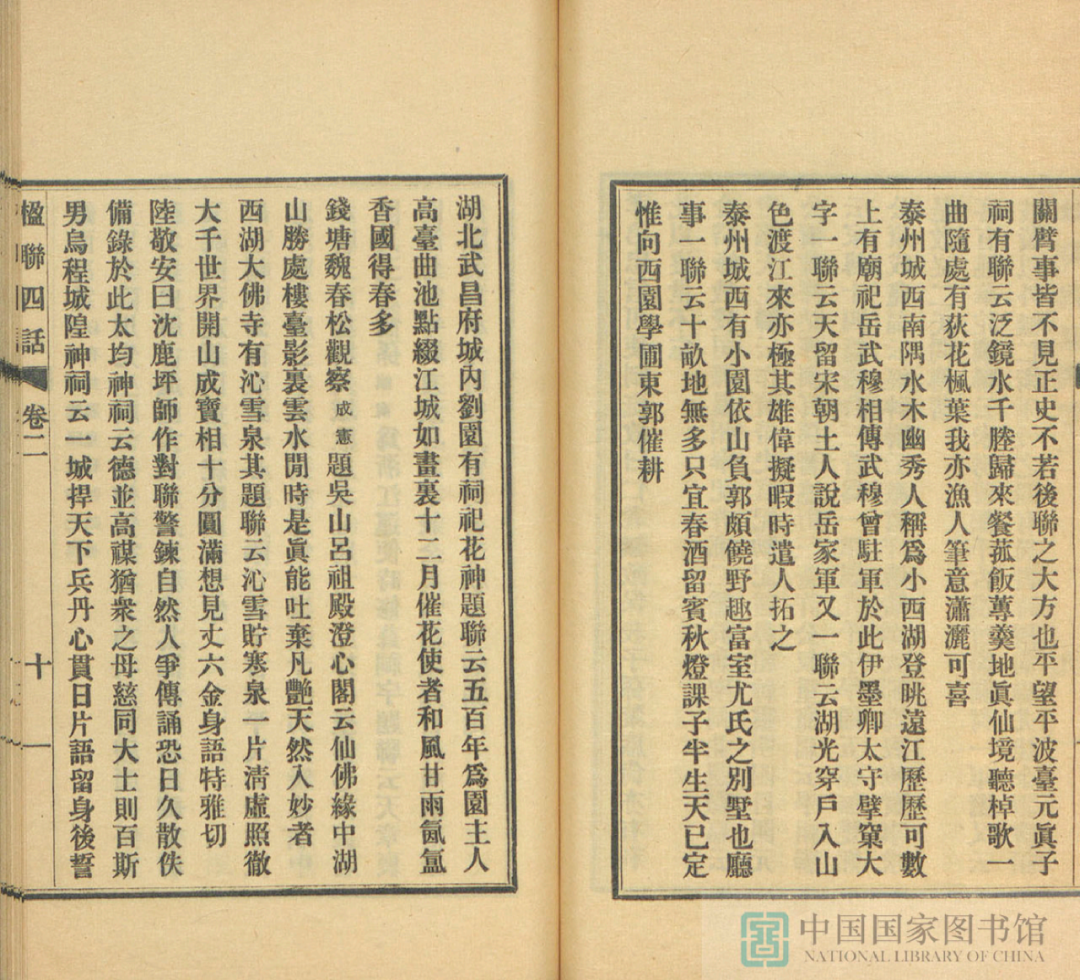 關臂事皆不見正史不若後聯之大方也平望平波臺元眞子
祠有聯云泛鏡水千塍歸來餐菰飯蓴羹地眞仙境聽棹歌一
曲隨處有荻花楓葉我亦漁人筆意瀟灑可喜
泰州城西南隅水木幽秀人稱爲小西湖登眺遠江歷歷可數
上有廟祀岳武穆相傳武穆曾駐軍於此伊墨卿太守擘窠大
字一聯云天留宋朝土人說岳家軍又一聯云湖光穿戶入山
色渡江來亦極其雄偉擬暇時遣人拓之
泰州城西有小園依山負郭頗饒野趣富室尤氏之別墅也廳
事一聯云十畝地無多只宜春酒留賓秋燈課子半生天已定
惟向西園學圃東郭催耕
湖北武昌府城內劉園有祠祀花神題聯云五百年爲園主人
高臺曲池點綴江城如畫裏十二月催花使者和風甘雨氤氳
香國得春多
錢塘魏春松觀察成憲題吳山呂祖殿澄心閣云仙佛緣中湖
山勝處樓臺影裏雲水閒時是眞能吐棄凡艷天然入妙者
西湖大佛寺有沁雪泉其題聯云沁雪貯寒泉一片淸虛照徹
大千世界開山成寶相十分圓滿想見丈六金身語特雅切
陸敬安曰沈鹿坪師作對聯警鍊自然人爭傳誦恐日久散佚
備錄於此太均神祠云德並高禖猶衆之母慈同大士則百斯
男烏程城隍神祠云一城捍天下兵丹心貫日片語留身後誓
楹聯四話 卷二 十一
中国国家图书馆
NATIONAL LIBRARY OF CHINA